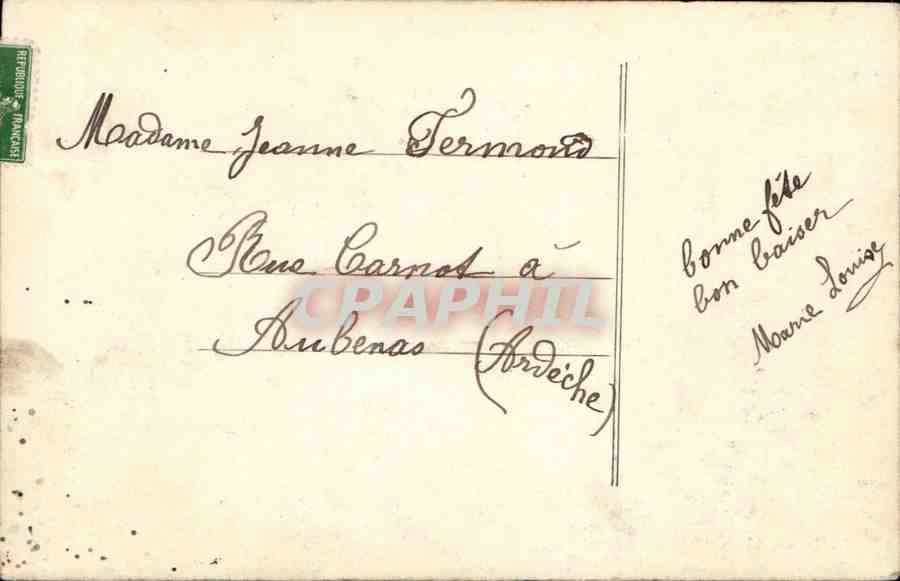 REPUBLIQUE FRANCAISE
Madame Jeanne Fermond
Rue Carnot à
Aubenas (Ardèche)
bonne fête
bon baiser
Marie Louise
CPAPHIL